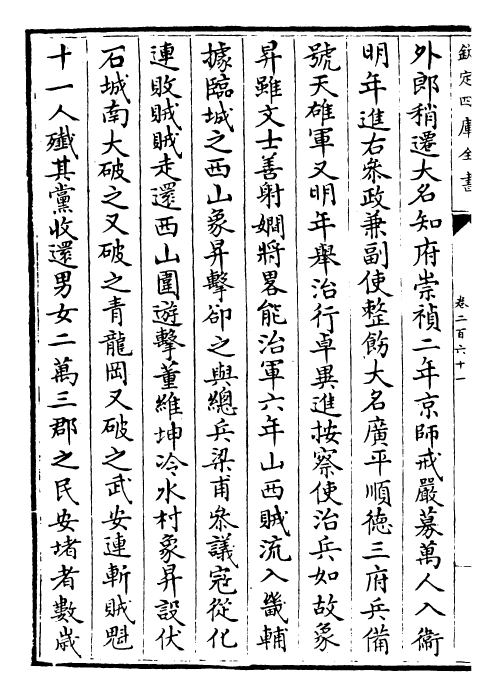 欽定四庫全書
卷二百六十一
外郎稍遷大名知府崇禎二年京師戒嚴募萬人入衞
明年進右叅政兼副使整飭大名廣平順徳三府兵備
號天雄軍又明年舉治行卓異進按察使治兵如故象
昇雖文士善射嫺將畧能治軍六年山西賊流入畿輔
據臨城之西山象昇擊卻之與總兵梁甫叅議宼從化
連敗賊賊走還西山圍遊擊董維坤冷水村象昇設伏
石城南大破之又破之青龍岡又破之武安連斬賊魁
十一人殱其黨收還男女二萬三郡之民安堵者數嵗